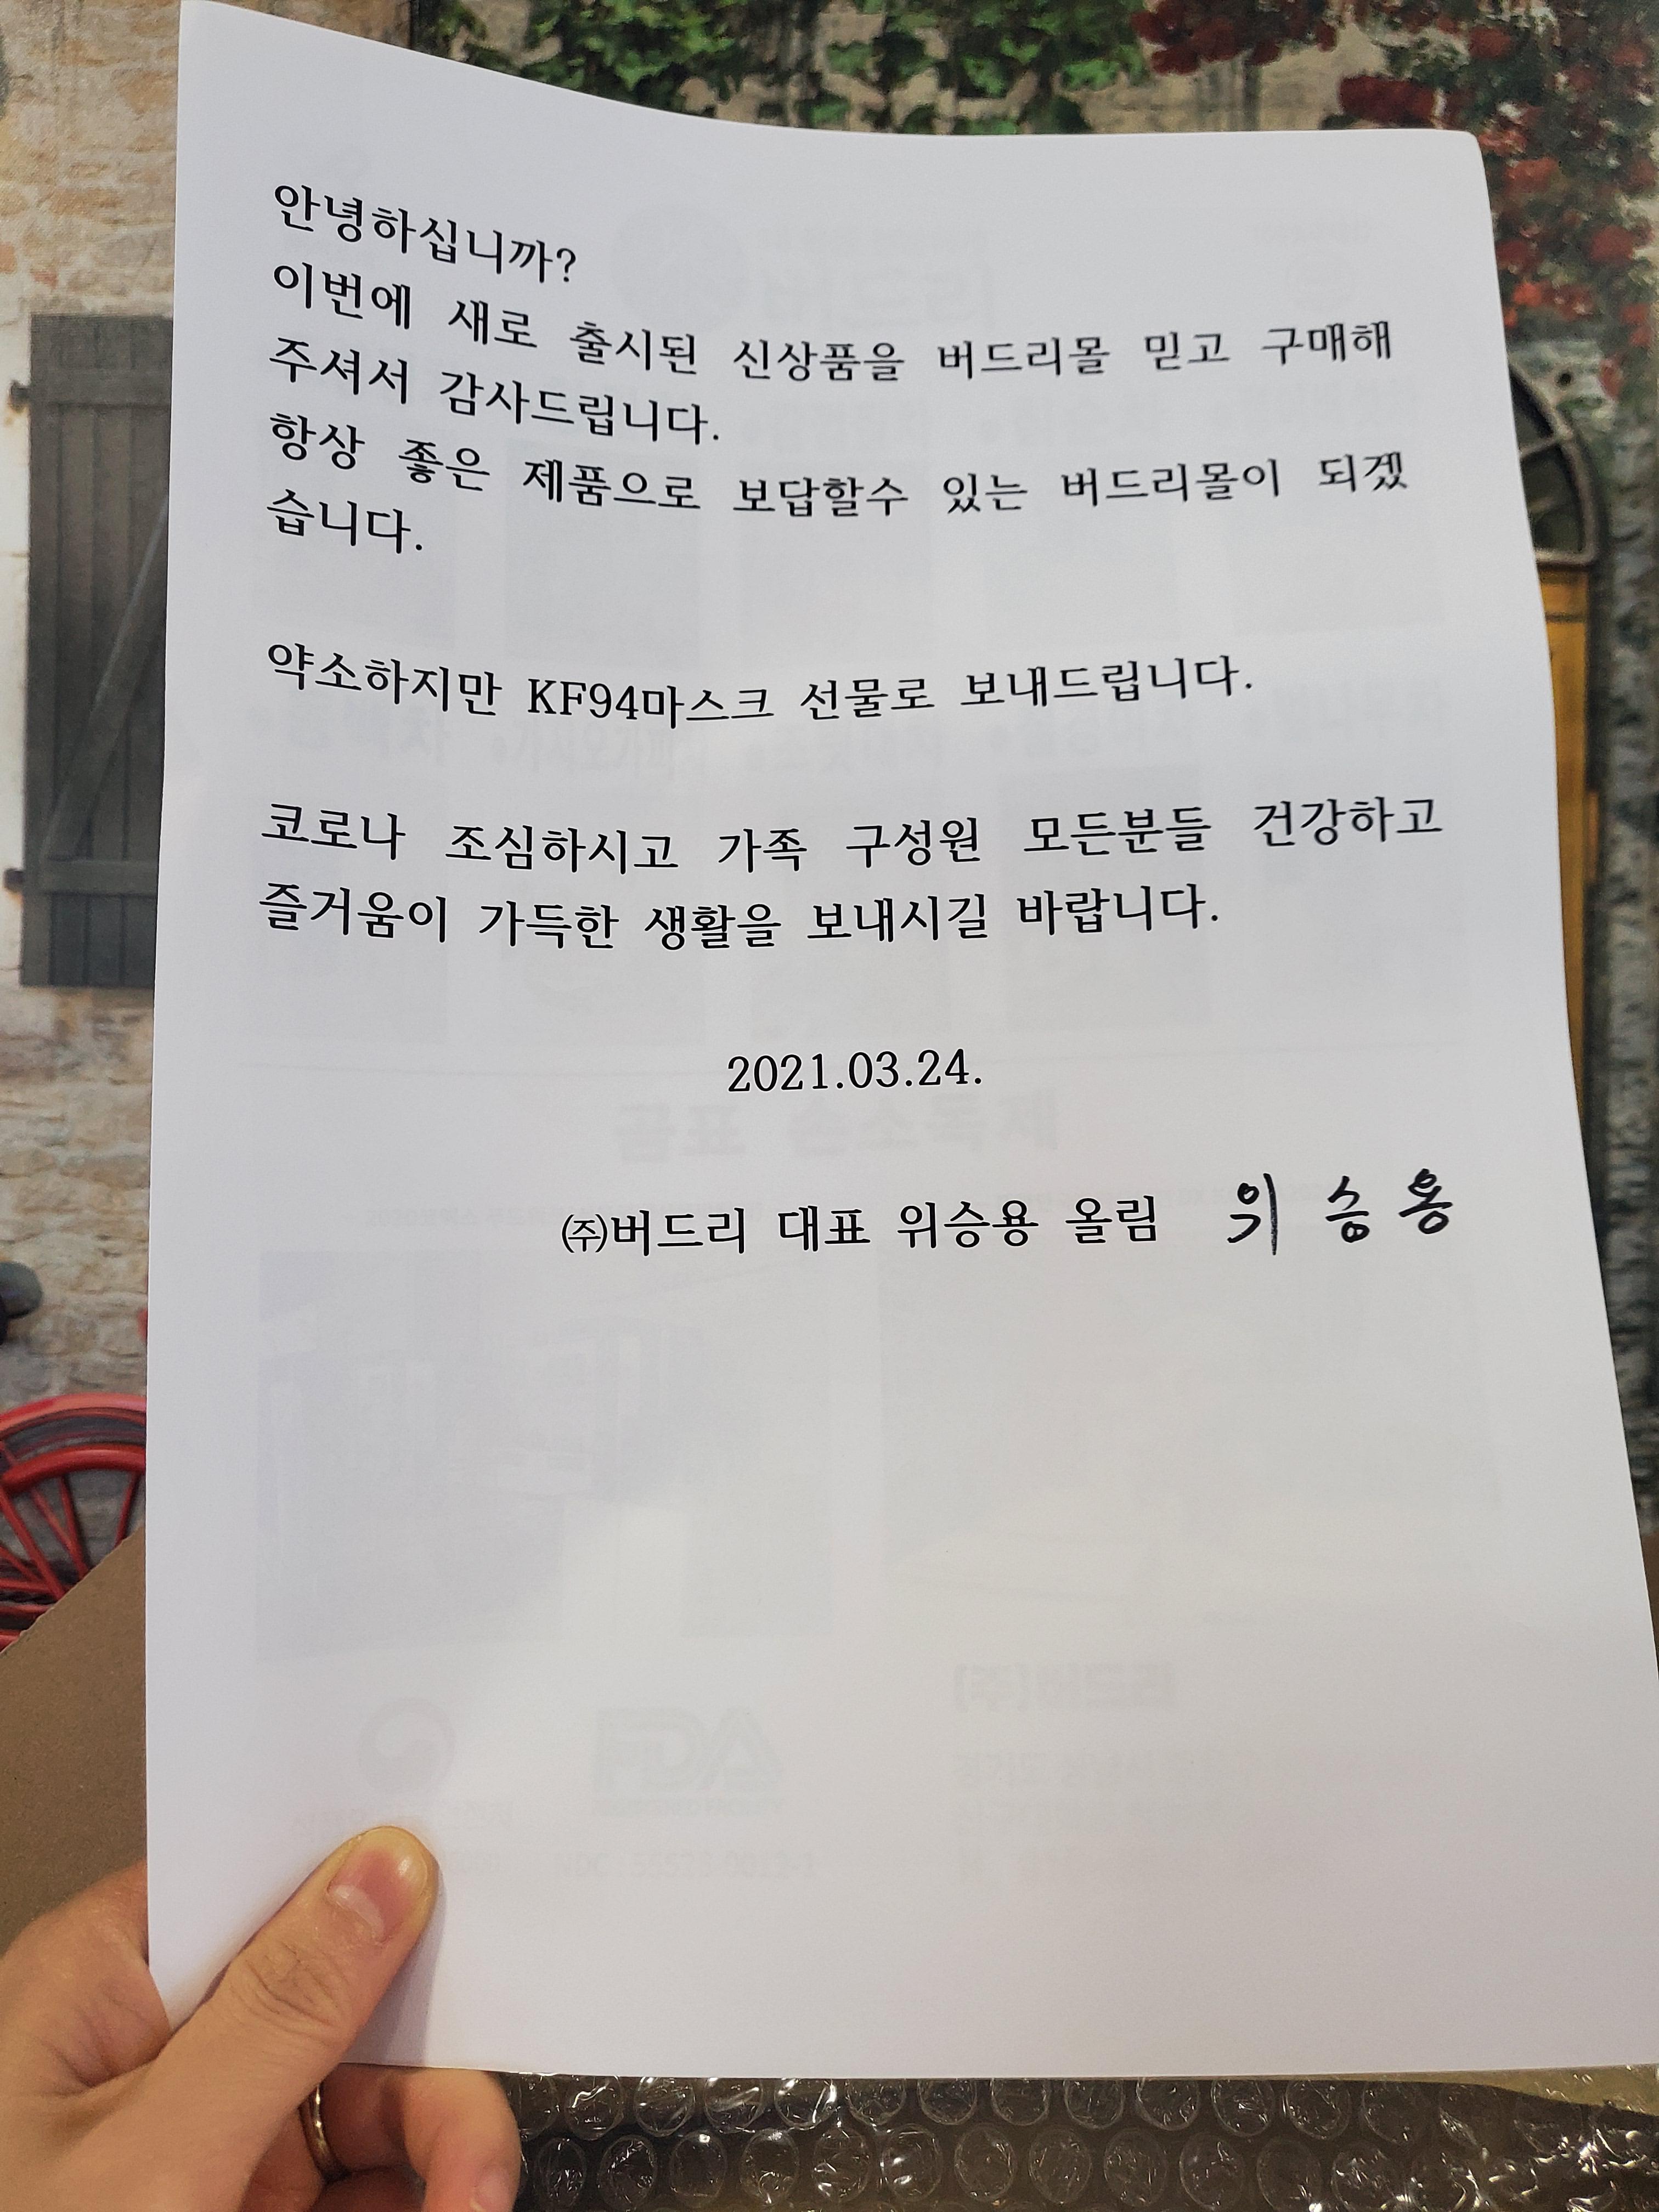 안녕하십니까?
이번에 새로 출시된 신상품을 버드리몰 믿고 구매해
주셔서 감사드립니다.
항상 좋은 제품으로 보답할수 있는 버드리몰이 되겠
습니다.
약소하지만 KF94마스크 선물로 보내드립니다.
코로나 조심하시고 가족 구성원 모든분들 건강하고
즐거움이 가득한 생활을 보내시길 바랍니다.
2021.03.24.
㈜버드리 대표 위승용 올림 위승용